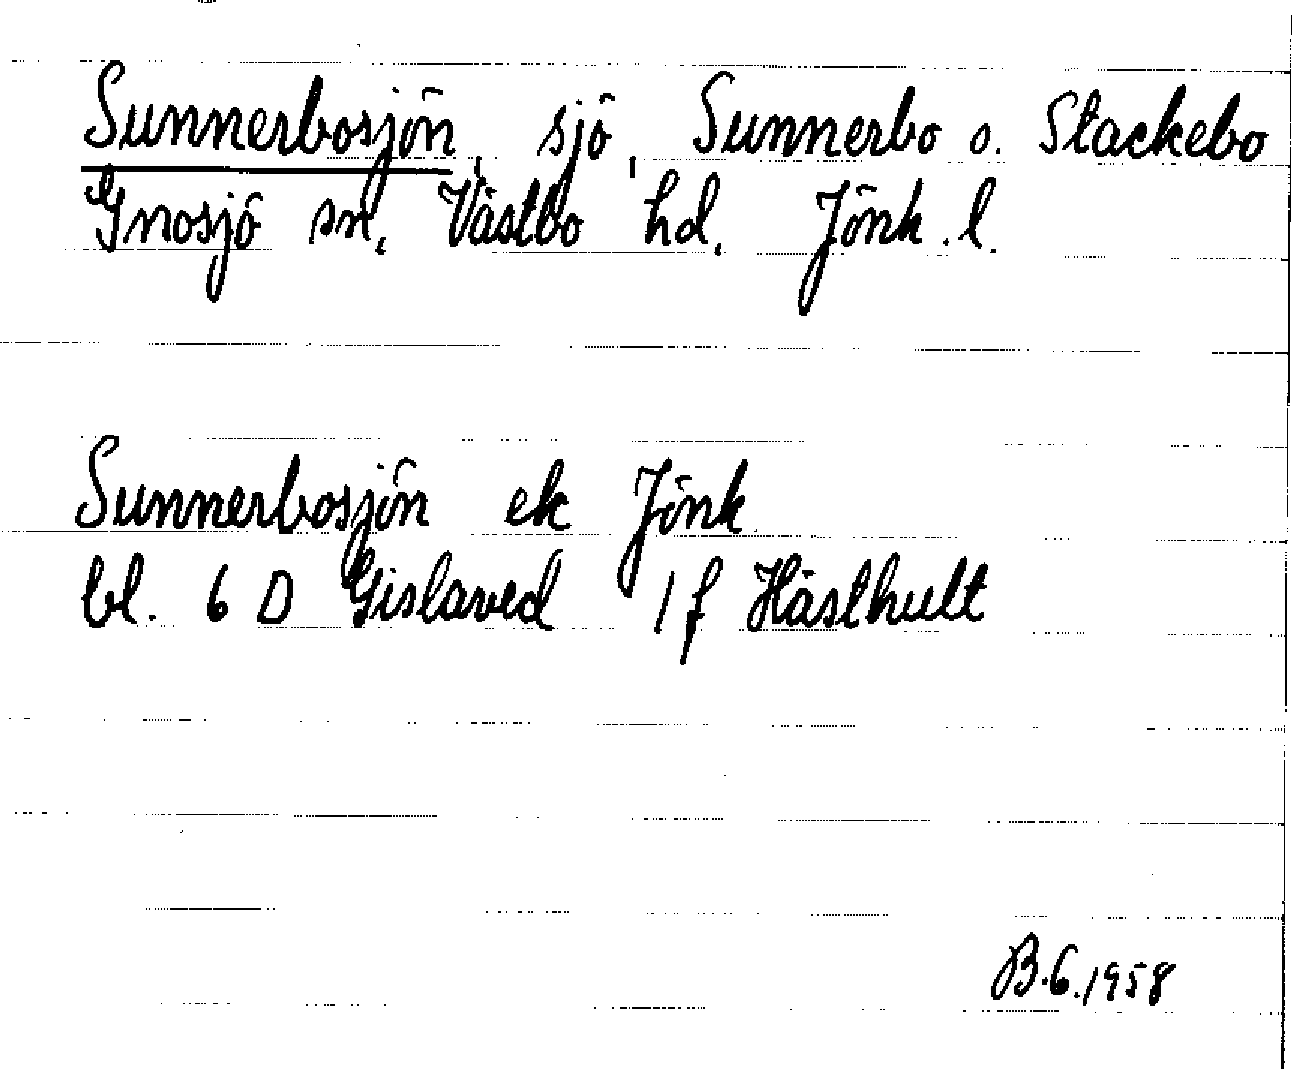 Sunnerbosjön, sjö, Sunnerbo o. Stackebo
Gnosjö sn, Västbo hd, Jönk. l.
Sunnerbosjön ek Jönk
bl. 6 D Gislaved 1 f Hästhult
B.6.1958